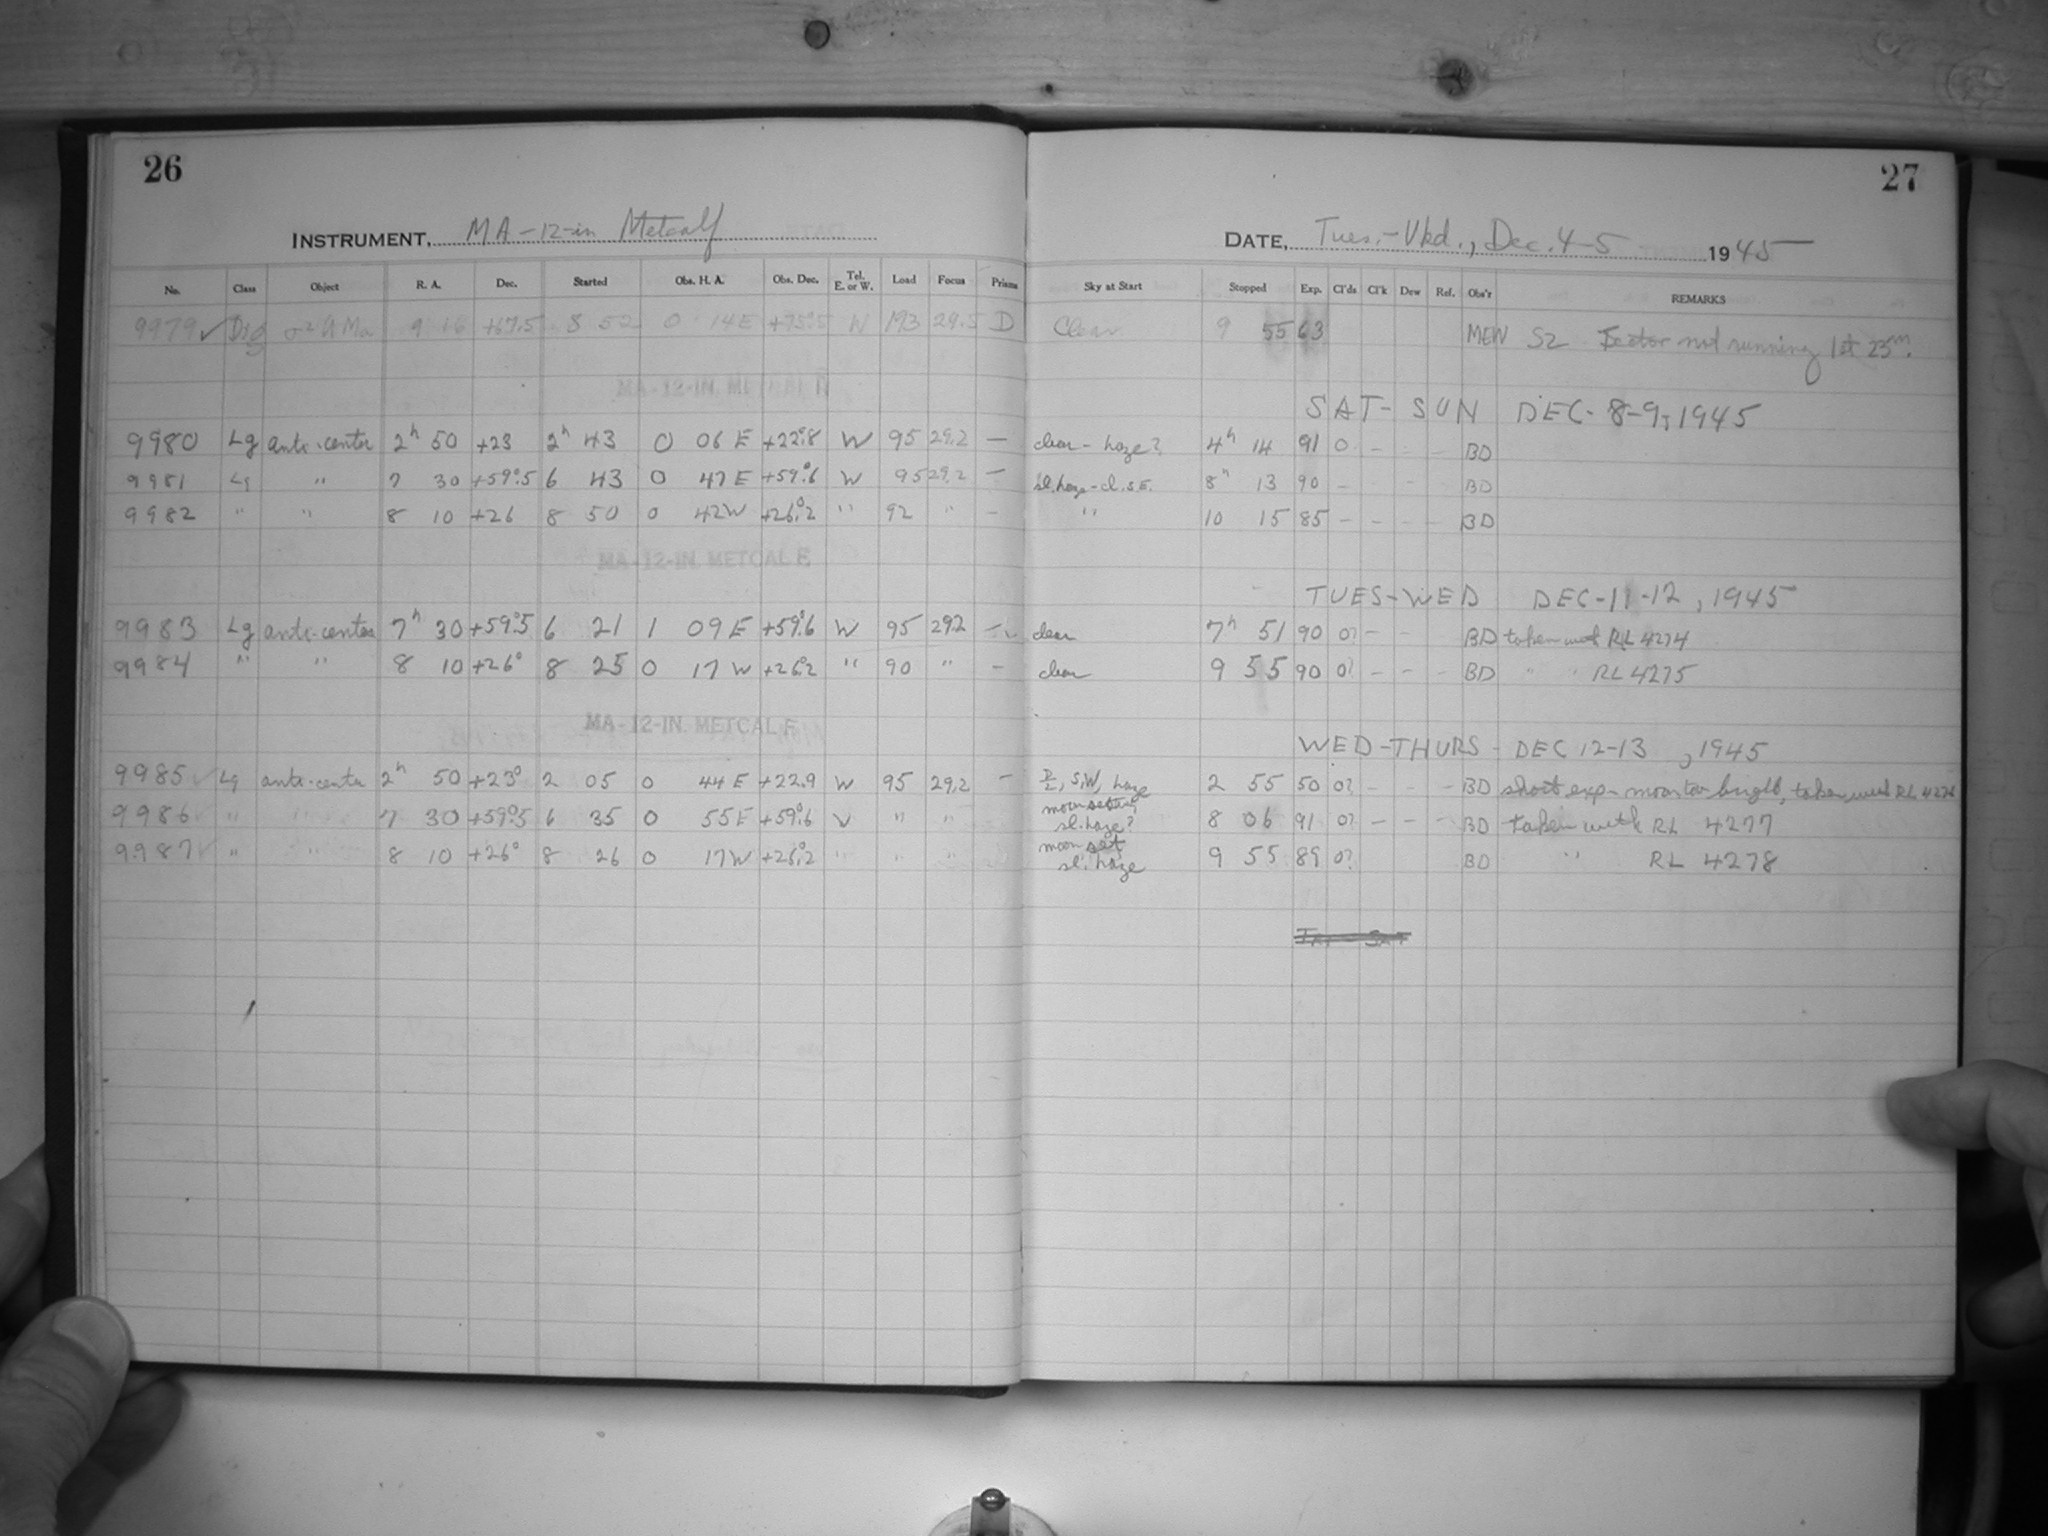 26
27
INSTRUMENT, MA-12-in Metcalf
DATE, Tues.-Wed., Dec. 4-5 1945
No. Class Object R. A. Dec. Started Obs. H. A. Obs. Dec. Tel. E. or W. Load Focus Prisms Sky at Start Stopped Exp. Cl'ds Cl'k Dew Ref. Obs'r REMARKS
9979 ✓ Dsg σ² U Ma 9 +67.5 8 52 0 14 E +75°.5 W 193 29.5 D Clear 9 55 63 MEW S2 not running 1st 23m.
MA-12-IN. METCALF
SAT-SUN DEC-8-9, 1945
9980 Lg anti-center 2h 50 +23 2h 43 0 06 E +22°.8 W 95 29.2 — clear - haze? 4h 14 91 0 - - - BD
9981 Lg " 7 30 +59°.5 6 43 0 47 E +59°.6 W 95 29.2 — sl. haze - cl. S.E. 8h 13 90 - - - - BD
9982 " " 8 10 +26 8 50 0 42 W +26°.2 " 92 " - " 10 15 85 - - - - BD
MA-12-IN. METCALF
TUES-WED DEC-11-12, 1945
9983 Lg anti-center 7h 30 +59°.5 6 21 1 09 E +59°.6 W 95 29.2 - clear 7h 51 90 0? - - BD taken with RL 4274
9984 " " 8 10 +26° 8 25 0 17 W +26°.2 " 90 " - clear 9 55 90 0? - - - BD " " RL 4275
MA-12-IN. METCALF
WED-THURS - DEC 12-13, 1945
9985 ✓ Lg anti-center 2h 50 +23° 2 05 0 44 E +22.9 W 95 29.2 - S,W, haze 2 55 50 0? - - - BD short exp - moon too bright, taken with RL 4276
9986 ✓ " " 7 30 +59°.5 6 35 0 55 E +59°.6 W " " moon setting sl. haze? 8 06 91 0? - - - BD taken with RL 4277
9987 ✓ " " 8 10 +26° 8 26 0 17 W +26°.2 " " " moon set sl. haze 9 55 89 0? BD " RL 4278